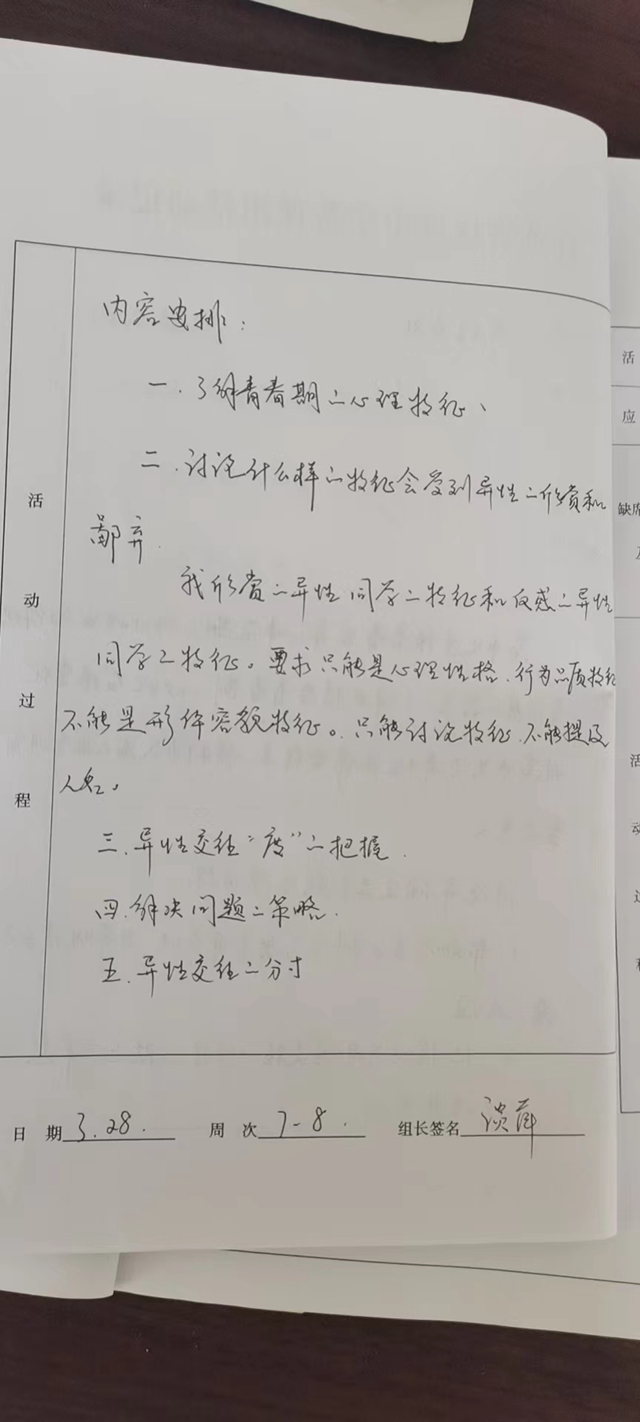 内容安排：
一.了解青春期的心理特征、
二.讨论什么样的特征会受到异性的欣赏和
鄙弃.
我欣赏的异性同学的特征和反感的异性
同学的特征。要求只能是心理性格、行为品质特征
不能是形体容貌特征。只能讨论特征.不能提及
人名。
三.异性交往“度”的把握.
四.解决问题的策略.
五.异性交往的分寸
活
动
过
程
日 期 3.28.
周 次 7-8.
组长签名
活
应
缺席
活
动